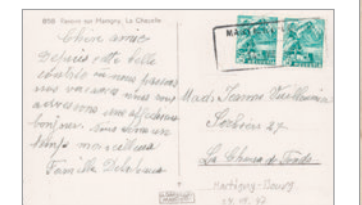 898 Ravoire sur Martigny, La Crêtelle
Chère amie
Depuis cette belle
contrée où nous passons
nos vacances nous vous
adressons une affectueux
bonjour. Nous avons un
temps merveilleux
Famille
Mad. Jeanne Vuilleumier
Sorbiers 27
La Chaux de Fonds
HELVETIA
Martigny-Bourg